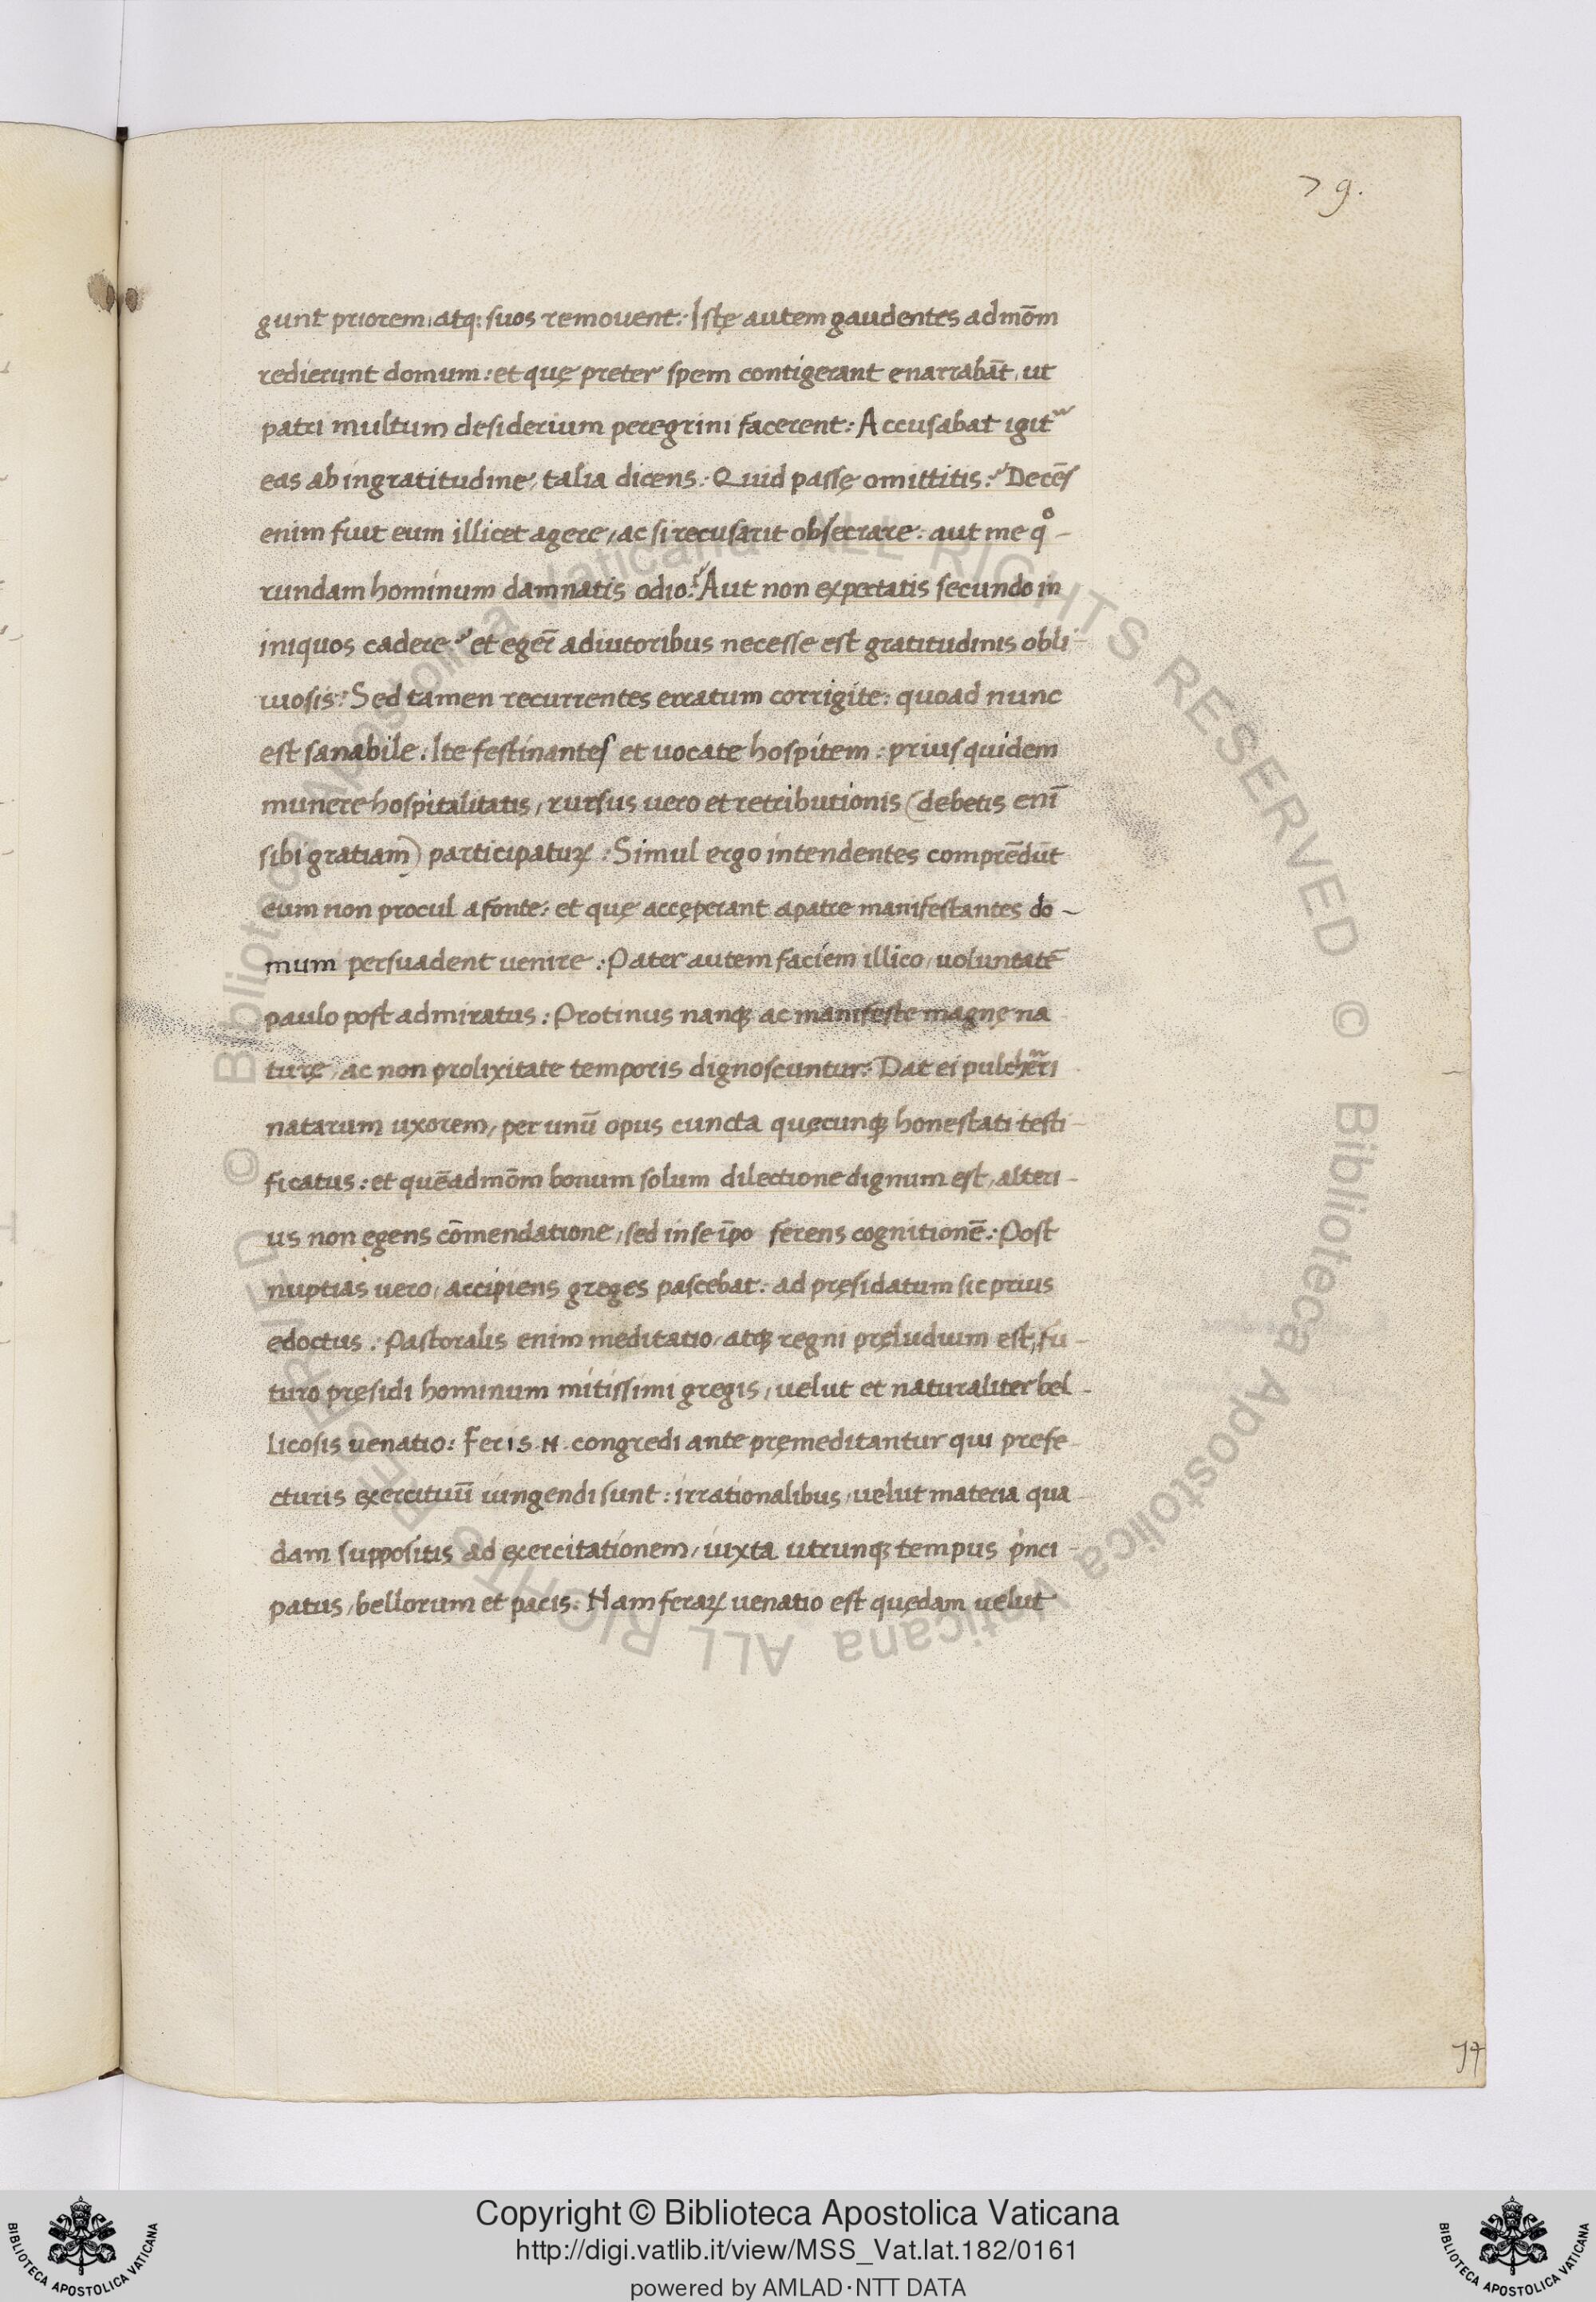 79.
gunt priorem, atq: suos remouent: Istę autem gaudentes admōm
redierunt domum: et quę preter spem contigerant enarrabāt, ut
patri multum desiderium peregrini facerent: Accusabat igit᷑
eas ab ingratitudine, talia dicens: Quid passę omittitis? Decēs
enim fuit eum illicet agere, ac si recusarit obsecrare: aut me qͦ-
rundam hominum damnatis odio? Aut non expectatis secundo in
iniquos cadere? et eger̄ adiutoribus necesse est gratitudinis obli-
uiosis: Sed tamen recurrentes erratum corrigite: quoad nunc
est sanabile: Ite festinantes et uocate hospitem: prius quidem
munere hospitalitatis, rursus uero et retributionis (debetis enī
sibi gratiam) participaturꝝ: Simul ergo intendentes comprēdūt
eum non procul a fonte: et quę accęperant a patre manifestantes do-
mum persuadent uenire: Pater autem faciem illico, uoluntatē
paulo post admiratus: Protinus nanqꝫ ac manifeste magnę na
turę, ac non prolixitate temporis dignoscuntur: Dat ei pulcher̄ri
natarum uxorem, per unū opus cuncta quęcunqꝫ honestati testi-
ficatus: et quēadmōm bonum solum dilectione dignum est, alteri-
us non egens cōmendatione, sed in se īpo ferens cognitionē: Post
nuptias uero, accipiens greges pascebat: ad pręsidatum sic prius
edoctus: Pastoralis enim meditatio, atqꝫ regni pręludium est, fu-
turo pręsidi hominum mitissimi gregis, uelut et naturaliter bel-
licosis uenatio: Feris .N. congredi ante pręmeditantur qui prefe-
cturis exercituū iungendi sunt: irrationalibus, uelut materia qua
dam suppositis ad exercitationem, iuxta utrunqꝫ tempus p̍nci-
patus, bellorum et pacis: Nam feraꝝ uenatio est quędam uelut
Copyright © Biblioteca Apostolica Vaticana
http://digi.vatlib.it/view/MSS_Vat.lat.182/0161
powered by AMLAD·NTT DATA
BIBLIOTECA APOSTOLICA VATICANA
BIBLIOTECA APOSTOLICA VATICANA
© Biblioteca Apostolica Vaticana ALL RIGHTS RESERVED © Biblioteca Apostolica Vaticana ALL RIGHTS RESERVED